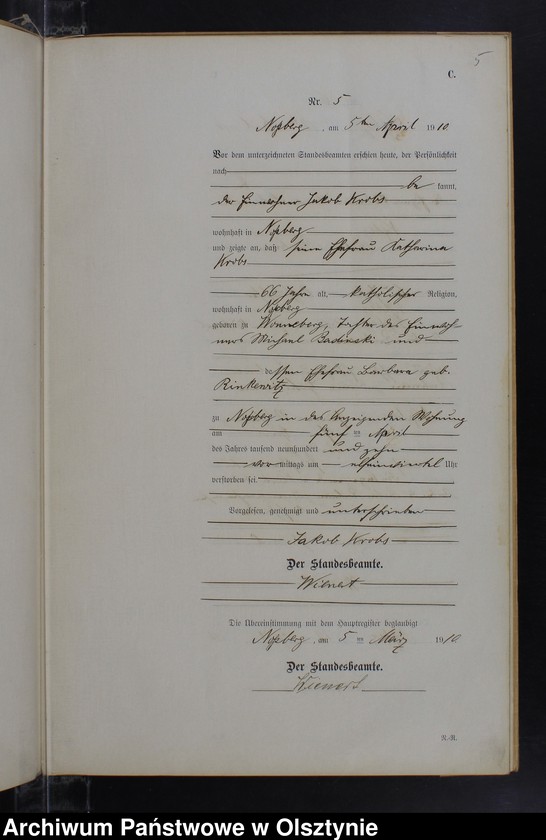 5
C.
Nr. 5
Noßberg, am 5ten April 1910
Vor dem unterzeichneten Standesbeamten erschien heute, der Persönlichkeit
nach
be kannt,
der Einwohner Jakob Krebs
wohnhaft in Noßberg
und zeigte an, daß seine Ehefrau Katharina
Krebs
66 Jahre alt, katholischer Religion,
wohnhaft in Noßberg
geboren zu Wonneberg, Tochter des Einwoh-
ners Michael und
dessen Ehefrau Barbara geb.
Rinkewitz
zu Noßberg in des Anzeigenden Wohnung
am fünf ten April
des Jahres tausend neunhundert und zehn
vor mittags um Uhr
verstorben sei.
Vorgelesen, genehmigt und unterschrieben
Jakob Krebs
Der Standesbeamte.
Wienert
Die Übereinstimmung mit dem Hauptregister beglaubigt
Noßberg, am 5 ten März 1910
Der Standesbeamte.
Wienert
N.-R.
Archiwum Państwowe w Olsztynie